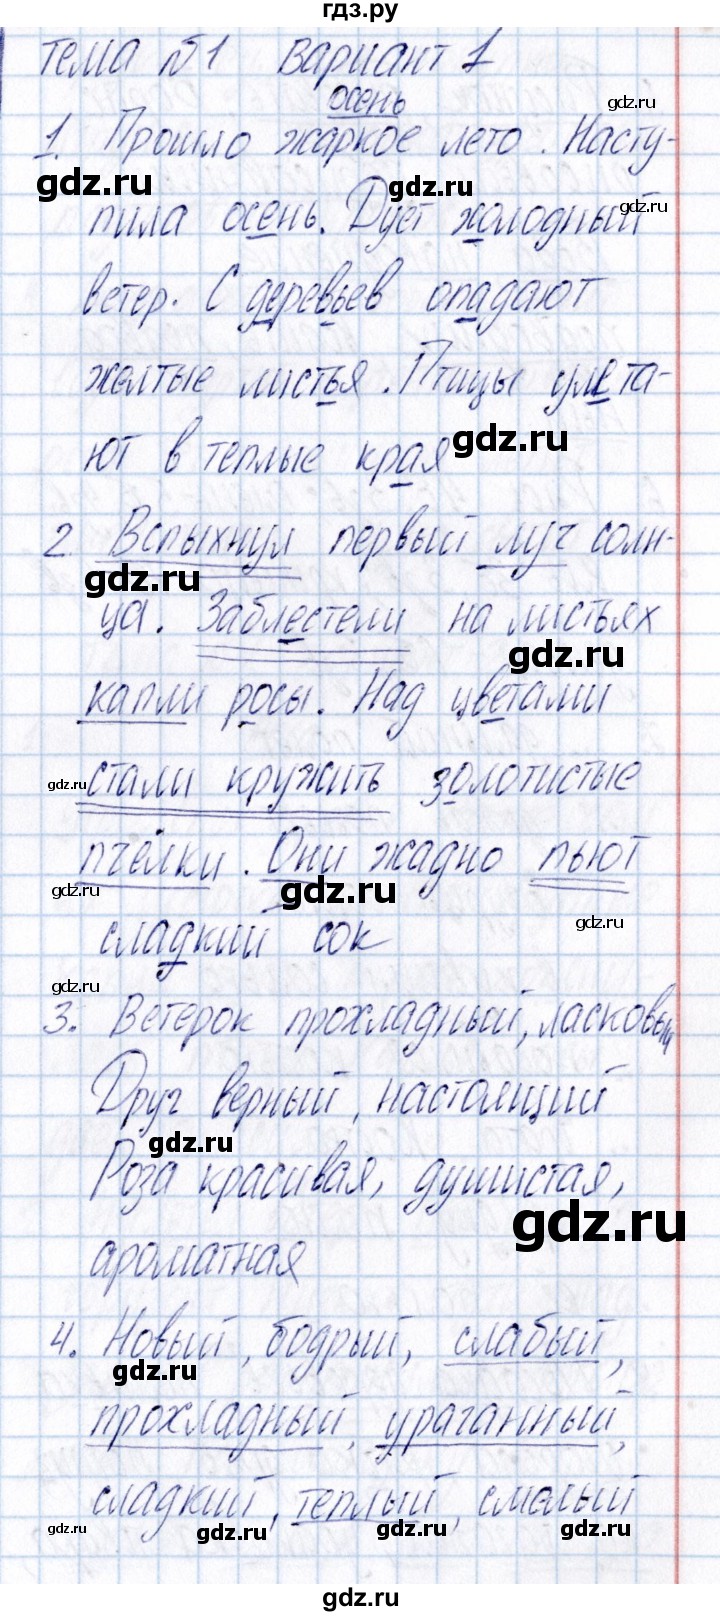 гдз.ру
тема №1 вариант 1
осень
gdz.ru
1. Прошло жаркое лето. Насту-
gdz.ru gdz.ru gdz.ru
пила осень. Дует холодный
ветер. С деревьев опадают
желтые листья. Птицы улета-
ют в теплые края
gdz.ru
2. Вспыхнул первый луч солн-
gdz.ru
ца. Заблестели на листьях
gdz.ru
капли росы. Над цветами
gdz.ru
стали кружить золотистые
пчёлки. Они жадно пьют
gdz.ru gdz.ru gdz.ru
сладкий сок
gdz.ru
3. Ветерок прохладный, ласковый
Друг верный, настоящий
gdz.ru
Роза красивая, душистая,
gdz.ru
ароматная
4. Новый, бодрый, слабый,
gdz.ru
прохладный, ураганный,
сладкий, теплый, смелый
gdz.ru gdz.ru gdz.ru gdz.ru
gdz.ru